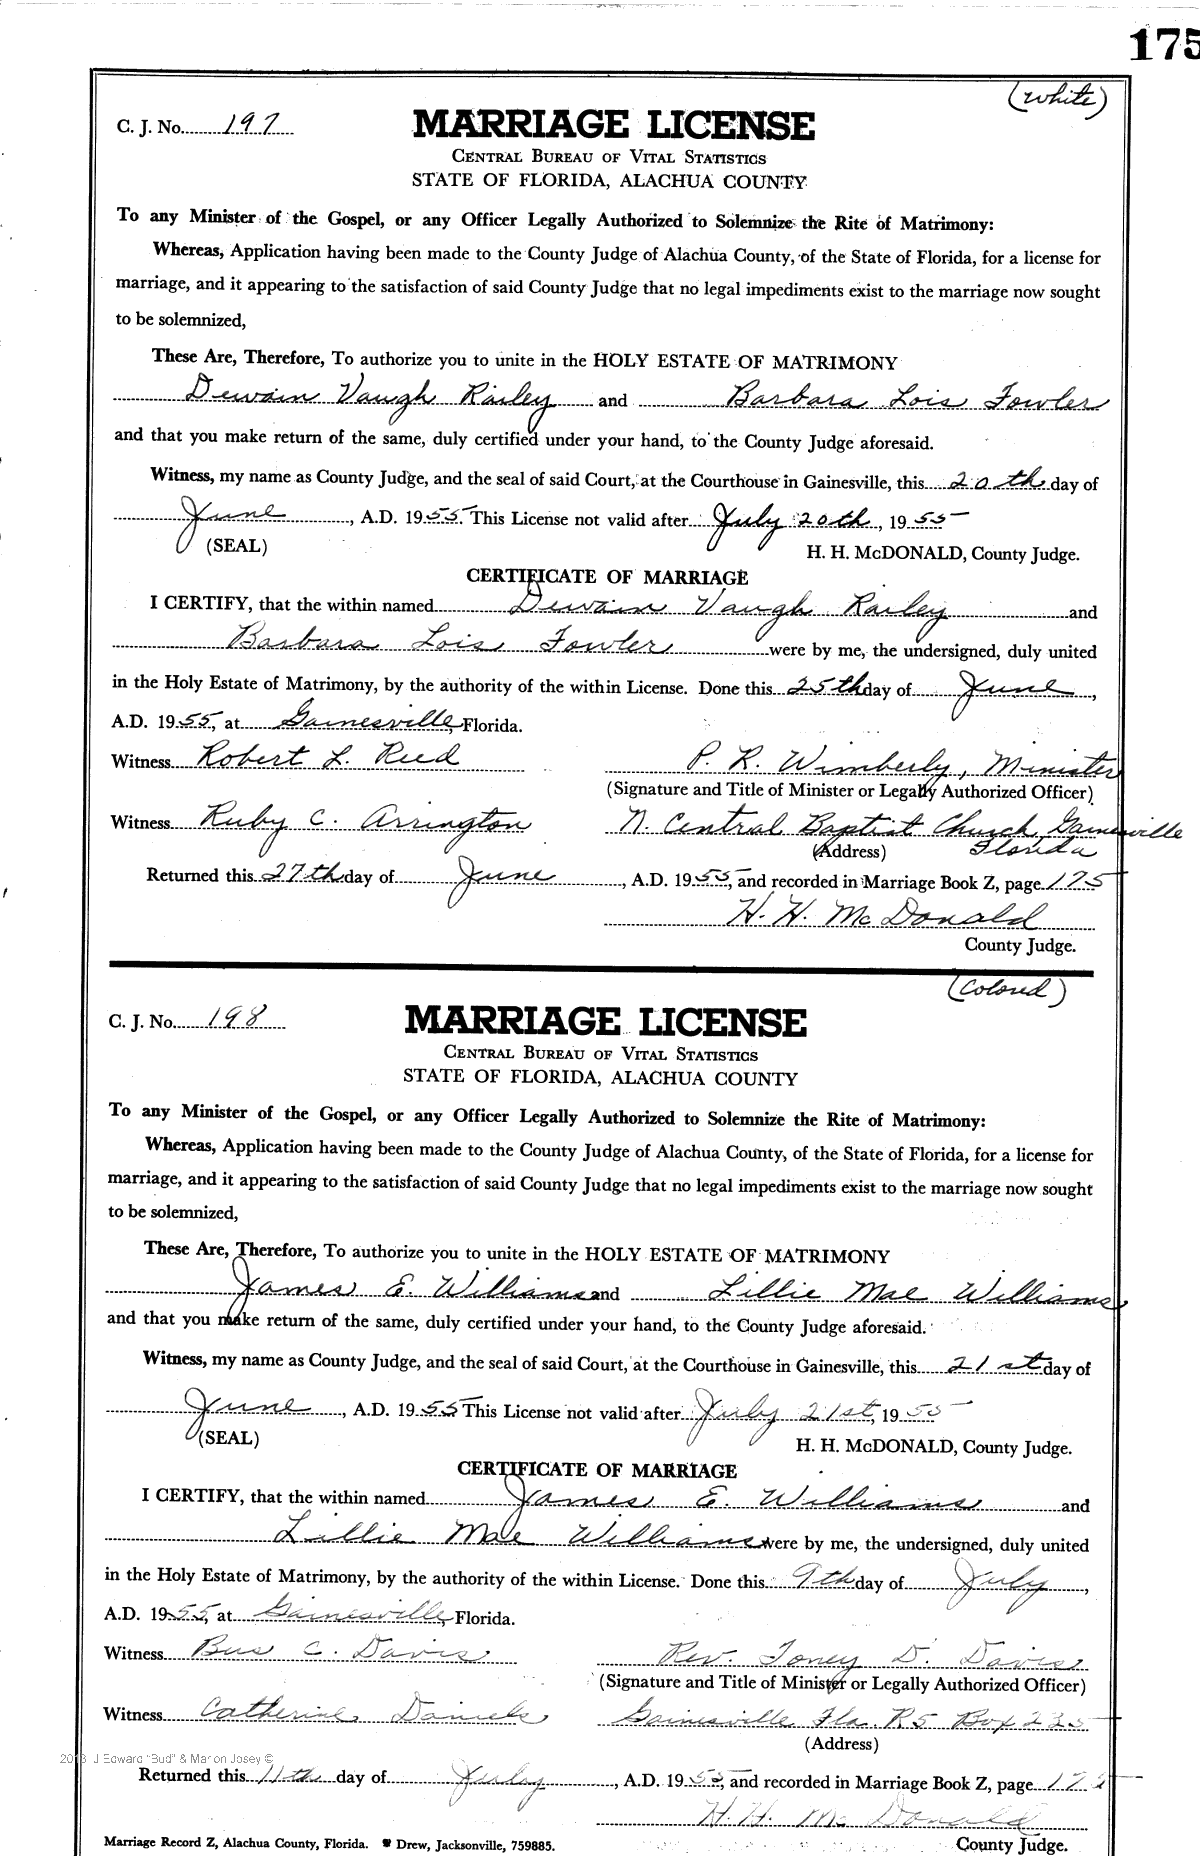 175
(White)
C. J. No. 197
MARRIAGE LICENSE
CENTRAL BUREAU OF VITAL STATISTICS
STATE OF FLORIDA, ALACHUA COUNTY
To any Minister of the Gospel, or any Officer Legally Authorized to Solemnize the Rite of Matrimony:
Whereas, Application having been made to the County Judge of Alachua County, of the State of Florida, for a license for
marriage, and it appearing to the satisfaction of said County Judge that no legal impediments exist to the marriage now sought
to be solemnized,
These Are, Therefore, To authorize you to unite in the HOLY ESTATE OF MATRIMONY
Dewain Vaugh Railey and Barbara Lois Fowler
and that you make return of the same, duly certified under your hand, to the County Judge aforesaid.
Witness, my name as County Judge, and the seal of said Court, at the Courthouse in Gainesville, this 20th day of
June, A.D. 1955 This License not valid after July 20th, 1955
(SEAL) H. H. McDONALD, County Judge.
CERTIFICATE OF MARRIAGE
I CERTIFY, that the within named Dewain Vaugh Railey and
Barbara Lois Fowler were by me, the undersigned, duly united
in the Holy Estate of Matrimony, by the authority of the within License. Done this 25th day of June,
A.D. 1955, at Gainesville, Florida.
Witness Robert L. Reed P. R. Wimberly, Minister
(Signature and Title of Minister or Legally Authorized Officer)
Witness Ruby C. Arrington N. Central Baptist Church, Gainesville
(Address) Florida
Returned this 27th day of June, A.D. 1955, and recorded in Marriage Book Z, page 175
H. H. McDonald
County Judge.
(Colored)
C. J. No. 198
MARRIAGE LICENSE
CENTRAL BUREAU OF VITAL STATISTICS
STATE OF FLORIDA, ALACHUA COUNTY
To any Minister of the Gospel, or any Officer Legally Authorized to Solemnize the Rite of Matrimony:
Whereas, Application having been made to the County Judge of Alachua County, of the State of Florida, for a license for
marriage, and it appearing to the satisfaction of said County Judge that no legal impediments exist to the marriage now sought
to be solemnized,
These Are, Therefore, To authorize you to unite in the HOLY ESTATE OF MATRIMONY
James E. Williams and Lillie Mae Williams
and that you make return of the same, duly certified under your hand, to the County Judge aforesaid.
Witness, my name as County Judge, and the seal of said Court, at the Courthouse in Gainesville, this 21st day of
June, A.D. 1955 This License not valid after July 21st, 1955
(SEAL) H. H. McDONALD, County Judge.
CERTIFICATE OF MARRIAGE
I CERTIFY, that the within named James E. Williams and
Lillie Mae Williams were by me, the undersigned, duly united
in the Holy Estate of Matrimony, by the authority of the within License. Done this 9th day of July,
A.D. 1955, at Gainesville, Florida.
Witness Bus C. Davis Rev. Toney D. Davis
(Signature and Title of Minister or Legally Authorized Officer)
Witness Catherine Daniels Gainesville Fla. R5 Box 235
(Address)
2013 J Edward "Bud" & Marion Josey ©
Returned this 11th day of July, A.D. 1955, and recorded in Marriage Book Z, page 175
H. H. McDonald
Marriage Record Z, Alachua County, Florida. Drew, Jacksonville, 759885. County Judge.